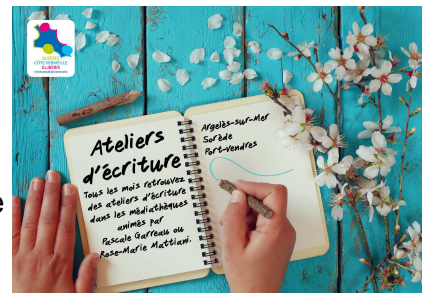 ALBERES
CÔTE VERMEILLE
ILLIBERIS
Ateliers
d'écriture
Tous les mois retrouvez
des ateliers d'écriture
dans les médiathèques
animés par
Pascale Garreau ou
Rose-Marie Mattiani.
Argelès-sur-Mer
Sorède
Port-Vendres
e